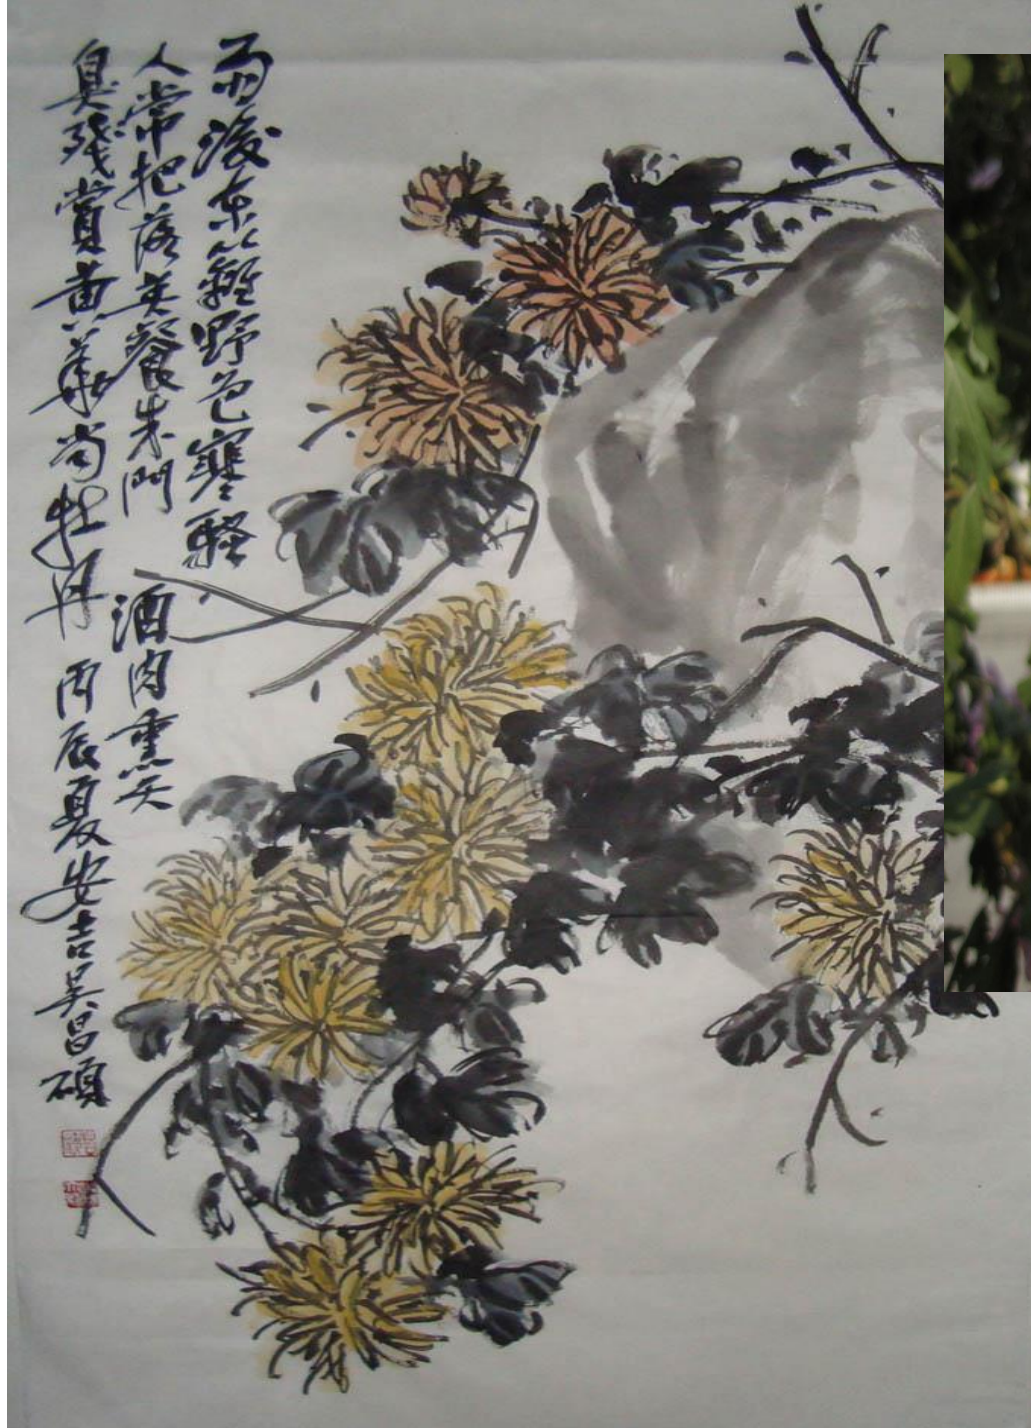 雨後东籬野色寒騷
人常把落英餐朱門酒肉熏天
臭残賞黄華尚牡丹 丙辰夏安吉吴昌碩